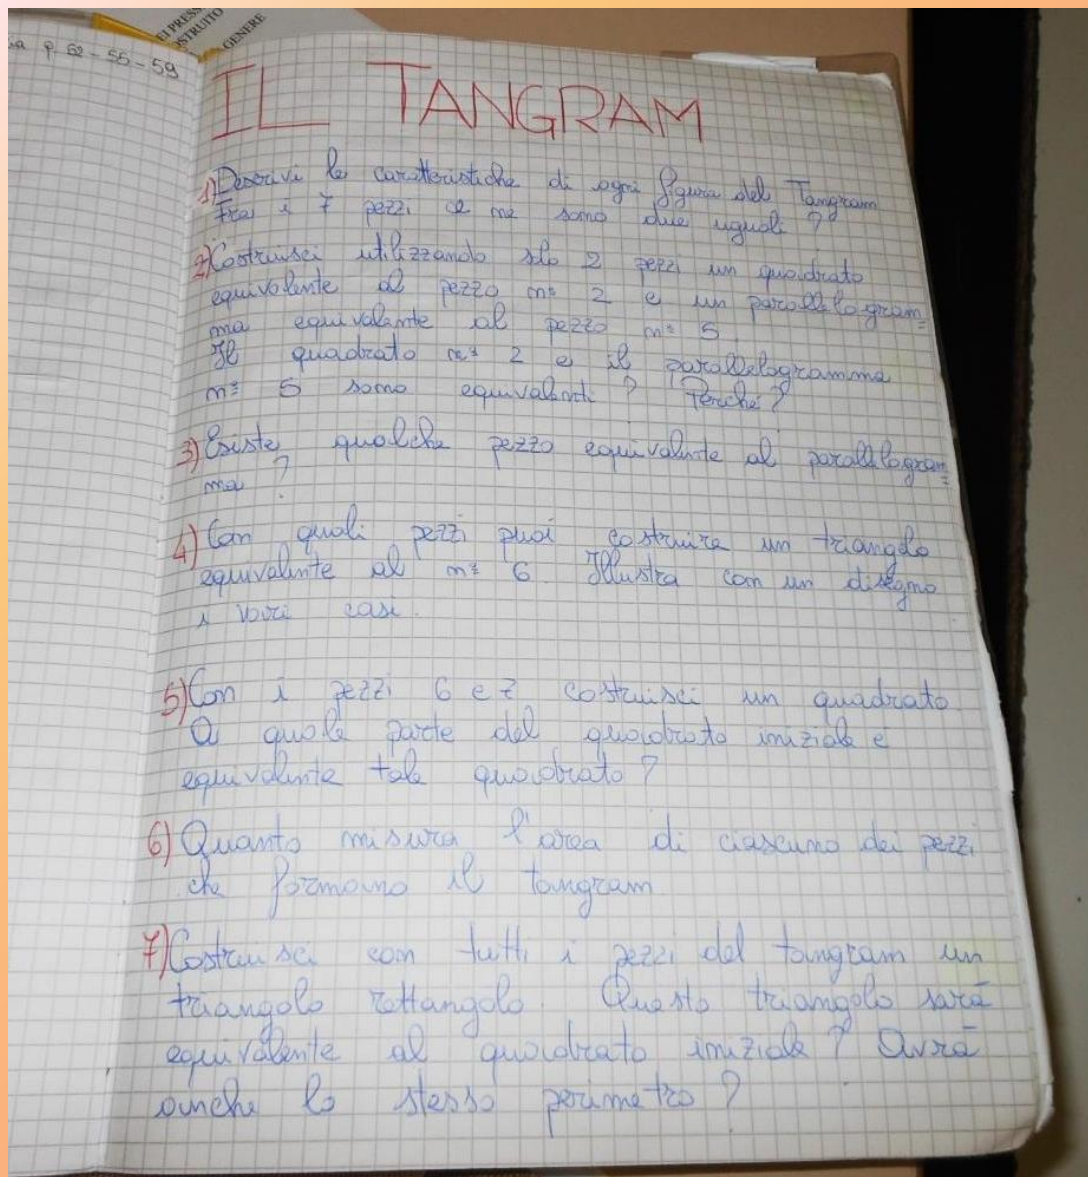 EI PRESS
OSTRUITO
GENERE
p. 52 - 55 - 59
IL TANGRAM
1) Descrivi le caratteristiche di ogni figura del Tangram
Fra i 7 pezzi ce ne sono due uguali ?
2) Costruisci utilizzando slo 2 pezzi un quadrato
equivalente al pezzo n° 2 e un parallelogram=
ma equivalente al pezzo n° 5
Il quadrato n° 2 e il parallelogramma
n° 5 sono equivalenti ? Perché ?
3) Esiste qualche pezzo equivalente al parallelogram=
ma ?
4) Con quali pezzi puoi costruire un triangolo
equivalente al n° 6 Illustra con un disegno
i vari casi.
5) Con i pezzi 6 e 7 costruisci un quadrato
A quale parte del quadrato iniziale e
equivalente tale quadrato ?
6) Quanto misura l'area di ciascuno dei pezzi
che formano il tangram
7) Costruisci con tutti i pezzi del tangram un
triangolo rettangolo. Questo triangolo sarà
equivalente al quadrato iniziale ? Avrà
anche lo stesso perimetro ?